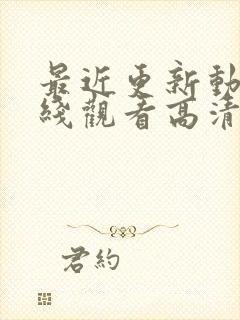 最近更新動
綫觀看高清
君約